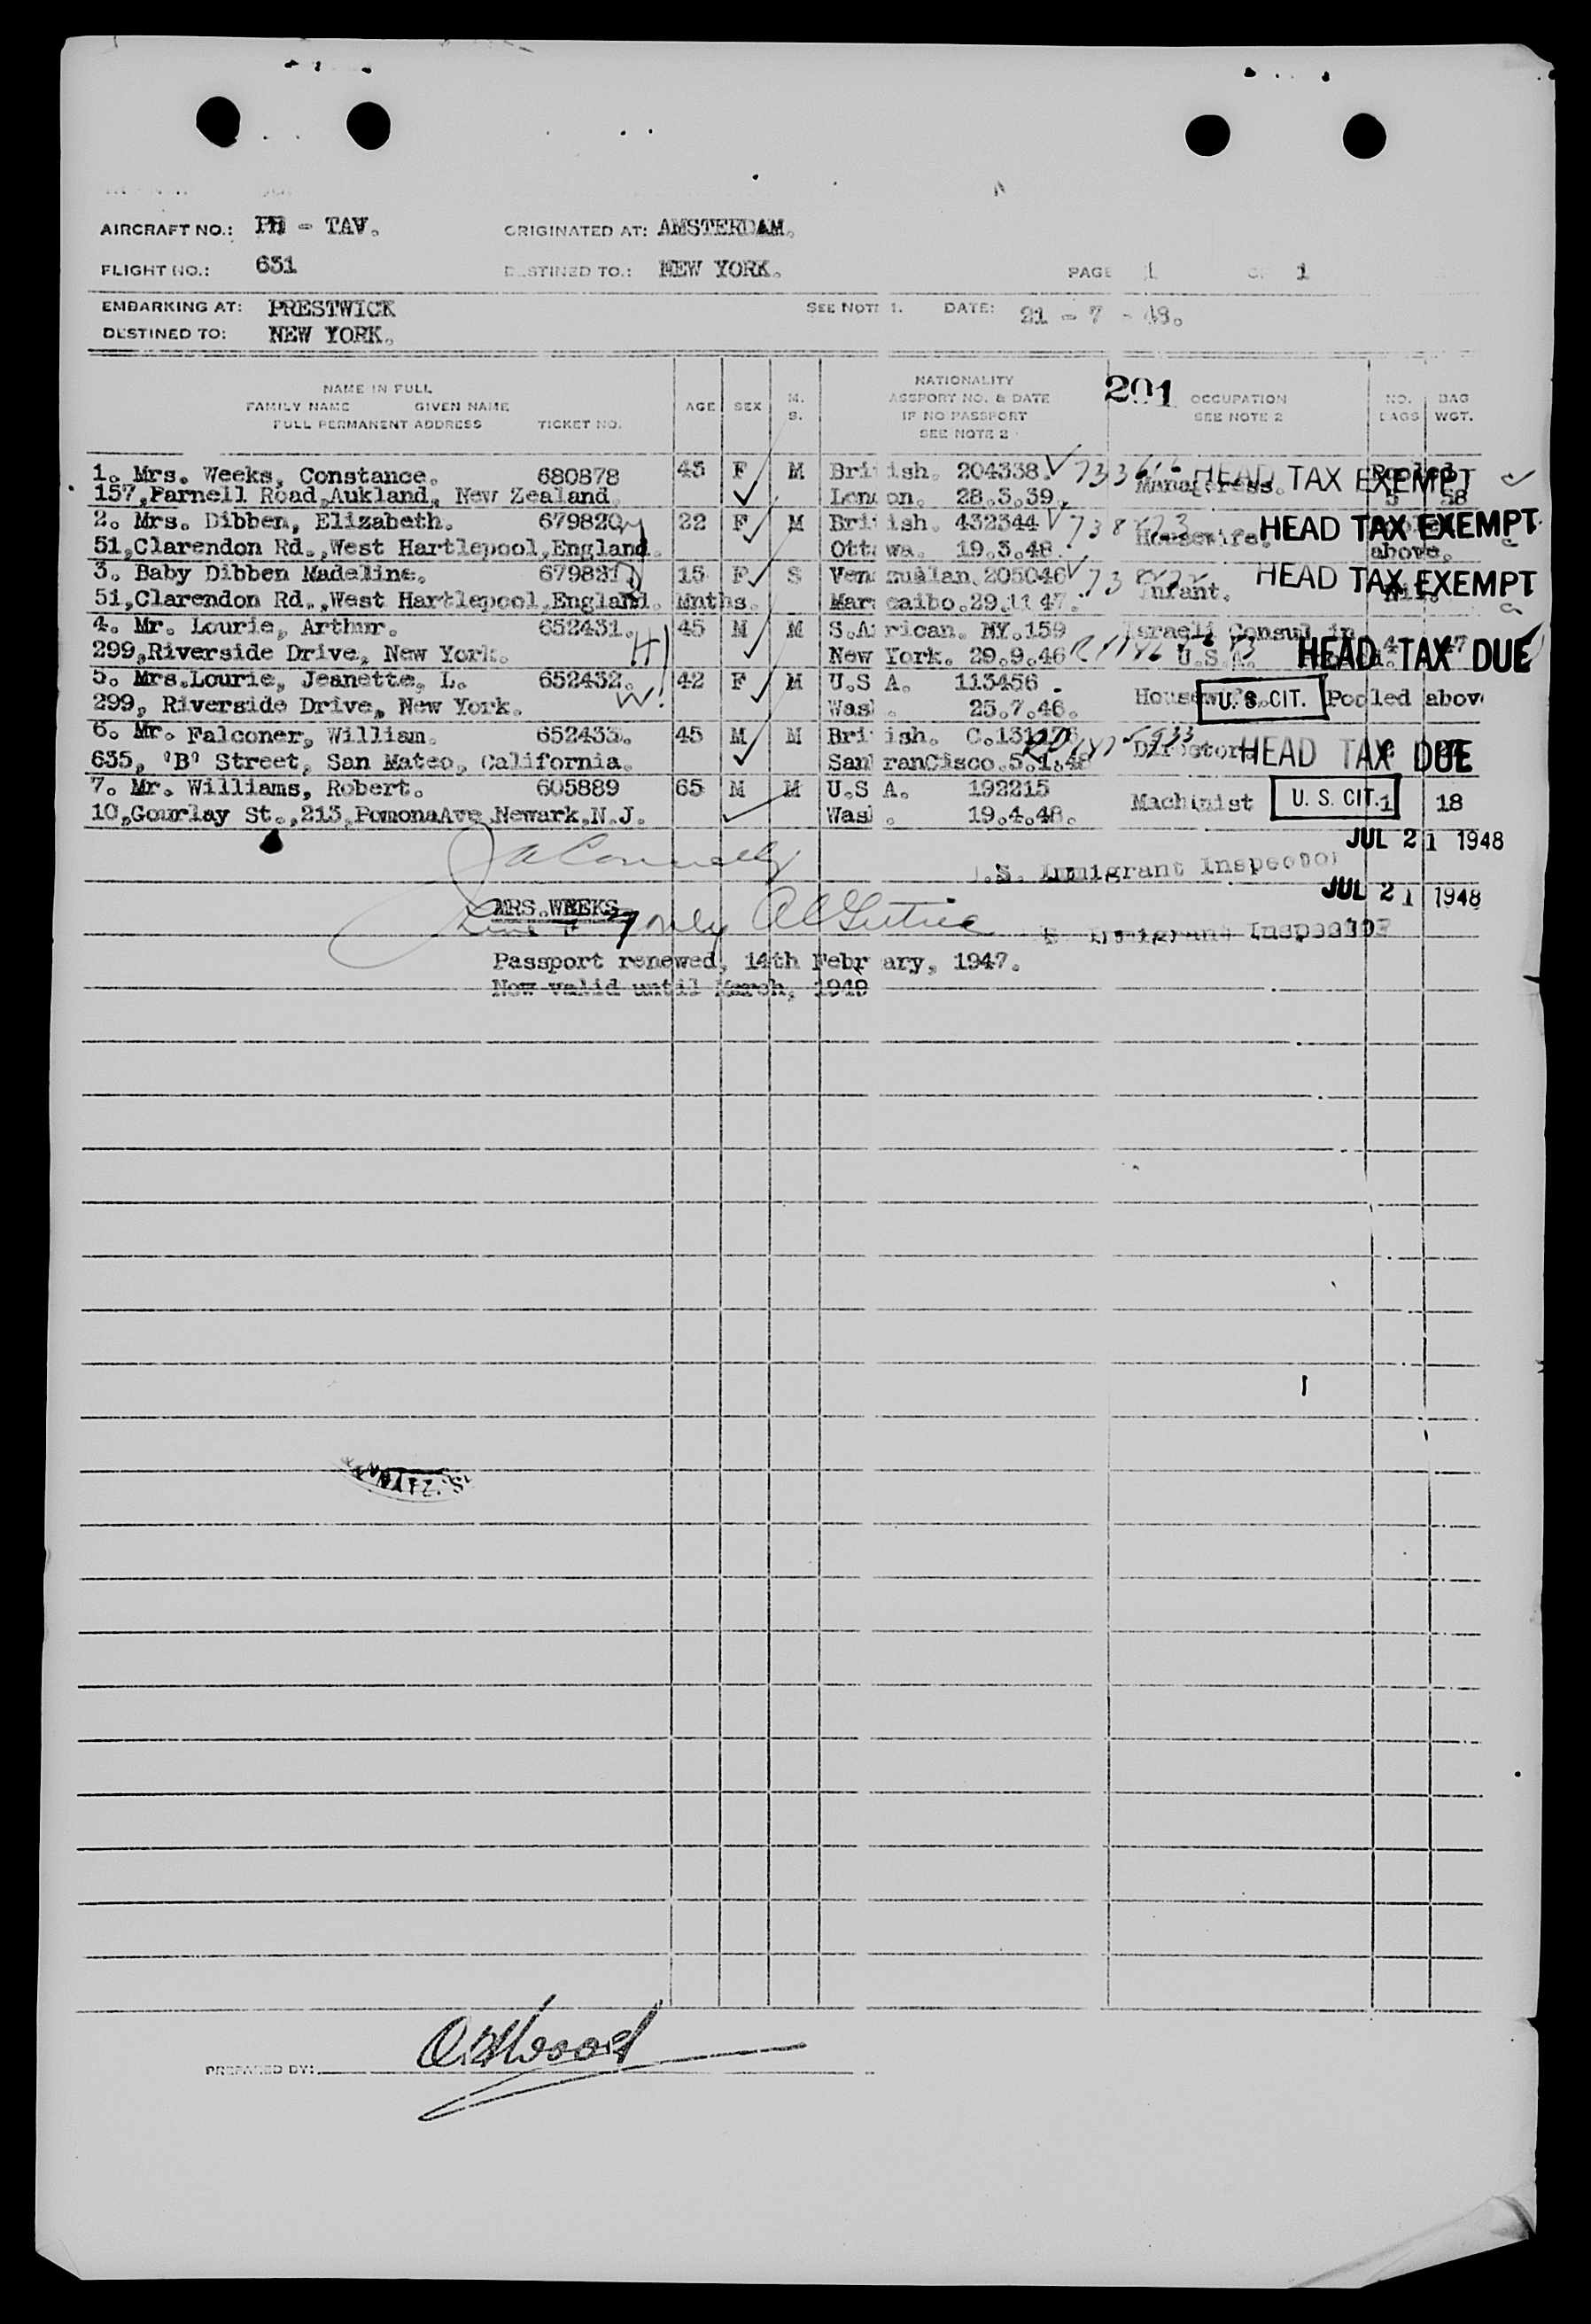 AIRCRAFT NO.: PH - TAV. ORIGINATED AT: AMSTERDAM.
FLIGHT NO.: 631 DESTINED TO.: NEW YORK. PAGE 1 OF 1
EMBARKING AT: PRESTWICK SEE NOTE 1. DATE: 21 - 7 - 48.
DESTINED TO: NEW YORK.
NAME IN FULL
FAMILY NAME GIVEN NAME
FULL PERMANENT ADDRESS TICKET NO.
AGE SEX M. S.
NATIONALITY
ASSPORT NO. & DATE
IF NO PASSPORT
SEE NOTE 2
201 OCCUPATION
SEE NOTE 2
NO. BAGS
BAG WGT.
1. Mrs. Weeks, Constance. 680878 43 F M British. 204338. Manageress. HEAD TAX EXEMPT
157,Parnell Road,Aukland, New Zealand. London. 28.3.39. 58
2. Mrs. Dibben, Elizabeth. 679820 22 F M British. 432344 Housewife. HEAD TAX EXEMPT
51,Clarendon Rd.,West Hartlepool,England. Ottawa. 19.3.48. above.
3. Baby Dibben Madeline. 679821 15 F S Venezualan.205046 Infant. HEAD TAX EXEMPT
51,Clarendon Rd.,West Hartlepool,England. Mnths. Maracaibo.29.11 47. Nil.
4. Mr. Lourie, Arthur. 652431. 45 M M S.African. NY.159 Israeli Consul in
299,Riverside Drive, New York. H New York. 29.9.46 U.S.A. 4 47 HEAD TAX DUE
5. Mrs.Lourie, Jeanette, L. 652432. W 42 F M U.S A. 113456 . Housewife. U. S. CIT. Pooled above
299, Riverside Drive, New York. Wash . 25.7.46.
6. Mr. Falconer, William. 652433. 45 M M British. Director. HEAD TAX DUE
635, 'B' Street, San Mateo, California. San FranCisco.5.1.48
7. Mr. Williams, Robert. 605889 65 M M U.S A. 192215 Machinist U. S. CIT. 1 18
10,Gourlay St.,213,PomonaAve Newark,N.J. Wash . 19.4.48.
JUL 21 1948
U.S. Immigrant Inspector
JUL 21 1948
MRS.WEEKS
only
S. Immigrant Inspector
Passport renewed, 14th February, 1947.
Now valid until March, 1949
PREPARED BY: